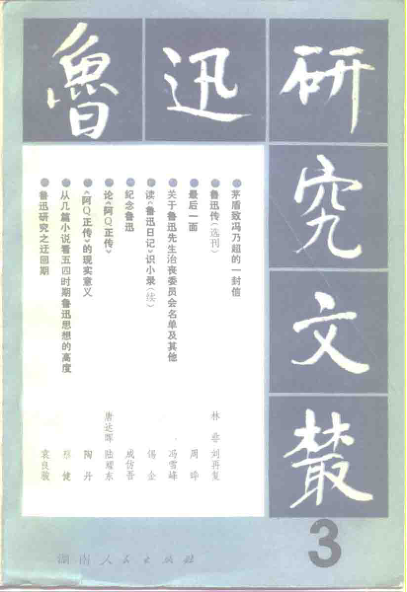 鲁迅研究文丛
3
茅盾致冯乃超的一封信
鲁迅传(选刊) 林非 刘再复
最后一面 周晔
关于鲁迅先生治丧委员会名单及其他 冯雪峰
读《鲁迅日记》识小录(续) 锡金
纪念鲁迅 成仿吾
论《阿Q正传》 唐达晖 陆耀东
《阿Q正传》的现实意义 陶丹
从几篇小说看五四时期鲁迅思想的高度 彤健
鲁迅研究之迂回期 袁良骏
湖南人民出版社